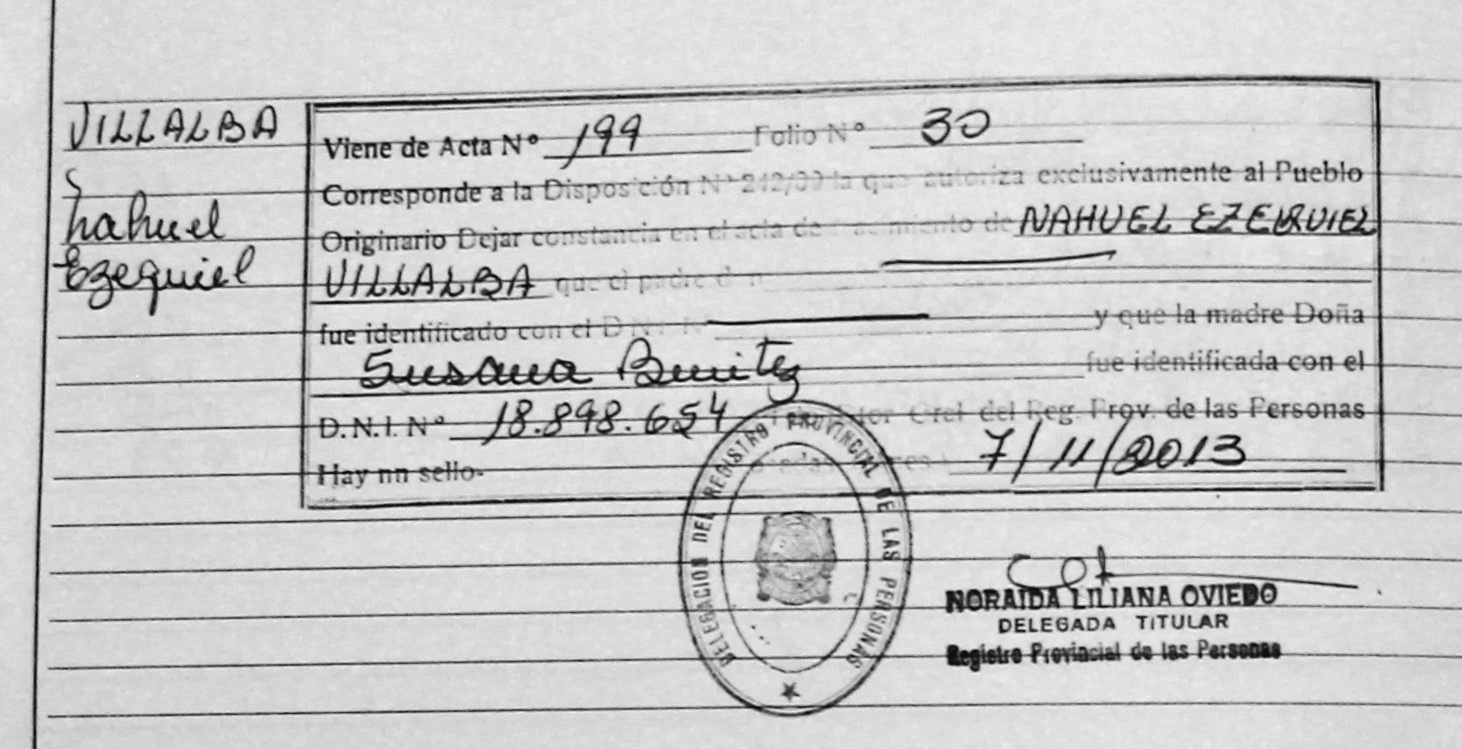 VILLALBA
Nahuel
Ezequiel
Viene de Acta Nº 199 Folio Nº 30
Corresponde a la Disposición Nº 242/99 la que autoriza exclusivamente al Pueblo
Originario Dejar constancia en el acta de Nacimiento de NAHUEL EZEQUIEL
VILLALBA que el padre don
fue identificado con el D.N.I. Nº y que la madre Doña
Susana Benitez fue identificada con el
D.N.I. Nº 18.898.654 Gral del Reg. Prov. de las Personas
Hay nn sello- 7/11/2013
DELEGACION DEL REGISTRO PROVINCIAL DE LAS PERSONAS
NORAIDA LILIANA OVIEDO
DELEGADA TITULAR
Registro Provincial de las Personas